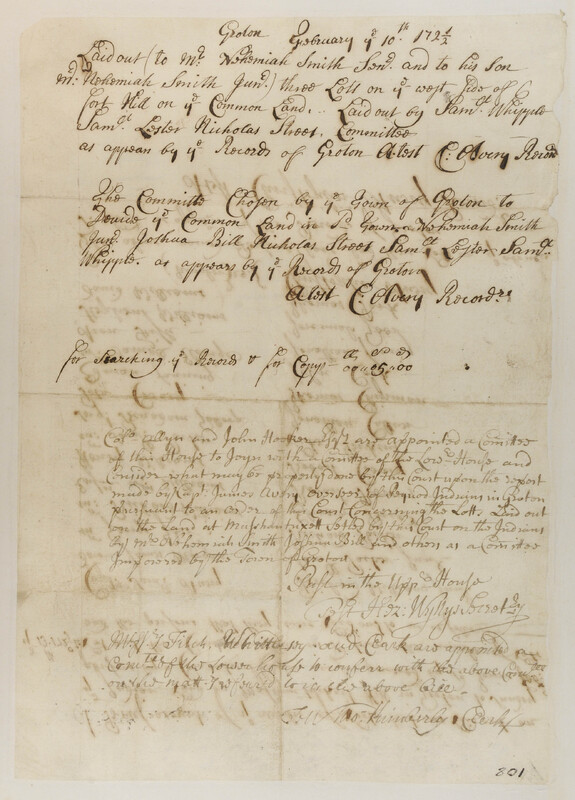 Groton February ye 10th 172½
Laid out (to Mr Nehemiah Smith Senr and to his son
Mr Nehemiah Smith Junr) three Lott on ye west side of
fort Hill on ye Common Land.. Laid out by Samll Whipple
Samll Lester Nicholas Street. Committee
as appears by ye Records of Groton Atest C: Avery Record
The Committe Chosen by ye Town of Groton to
Devide ye Common Land in sd Town, Nehemiah Smith
Junr Joshua Bill Nicholas Street Samll Lester Samll
Whipple. as appears by ye Records of Groton
Atest C: Avery Recordr
for Searching ye Records & for Copys 00 = 05 = 00
Collo Allyn and John Hooker Esqr are appointed a Comitee
of this House to Joyn with a Comitee of the Lowr House and
Consider what may be properly done by this Court upon the report
made by Capt James Avery overseer of Pequod Indians in Groton
pursuant to an order of this Court Concerning the Lotts Laid out
on the Land at Mushantuxett setled by this Court on the Indians
By Mr Nehemiah Smith Joshua Bill and others as a Comitee
Impowred by the Town of Groton
Past in the Uppr House
Test Hez: Wyllys Secretry
Messrs Fitch, Whittlesey and Clark are appointed a
Comtee of the Lower house to conferr with the above Comtee
on the matter referrd to in the above bill.
Test Tho: Kimberly Clerk
801